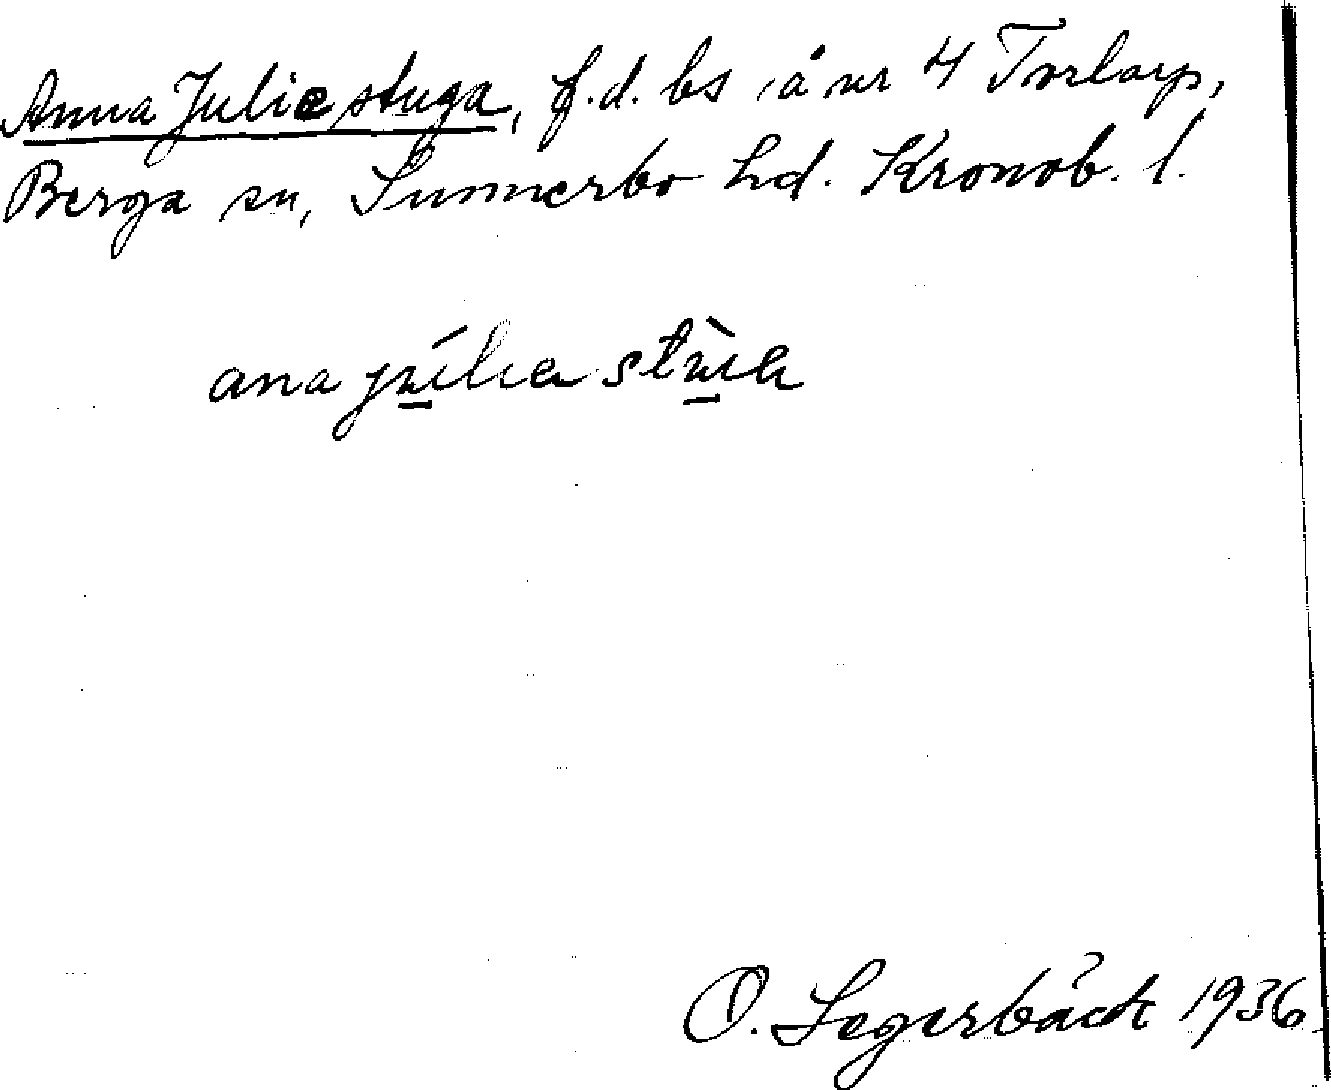 Anna Julie stuga, f.d. bs å nr 4 Torlarp,
Berga sn, Sunnerbo hd. Kronob. l.
ana júlia stùa
O. Segerbäck 1936